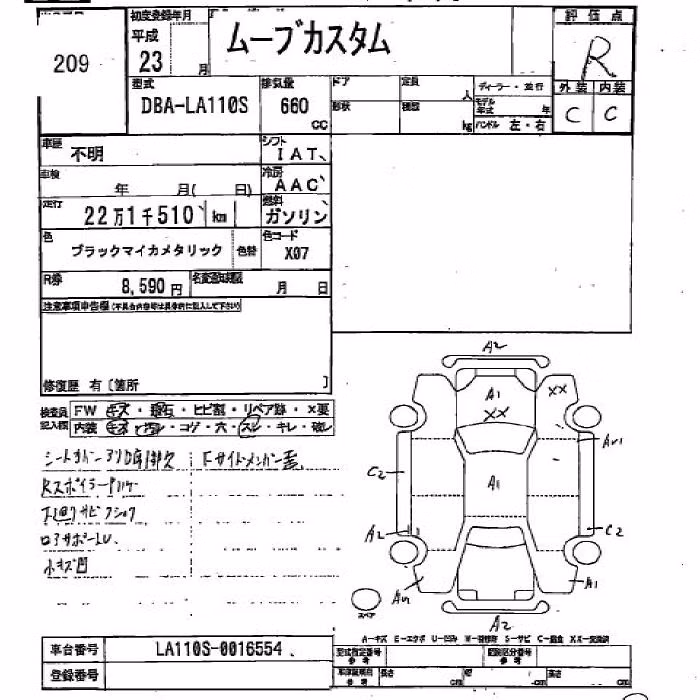 209
初度登録年月
平成
23 月
ムーブカスタム
評価点
R
型式
DBA-LA110S
排気量
660
CC
ドア
定員
人
形状
積載
kg
ディーラー・並行
モデル年式 年
ハンドル 左・右
外装 内装
C C
車歴
不明
シフト
IAT
車検
年 月( 日)
冷房
AAC
走行
22万1千510 km
燃料
ガソリン
色
ブラックマイカメタリック
色替
色コード
X07
R券
8,590円
名変期限
月 日
注意事項申告欄(不具合内容等は具体的に記入して下さい)
修復歴 有〔箇所 〕
検査員記入欄
FW キズ・飛石・ヒビ割・リペア跡・×要
内装 キズ・汚レ・コゲ・穴・スレ・キレ・破レ
Fサイドメンバー
Rスポイラー
下回りサビ
小キズ凹
A2
A1
XX
XX
C2
A1
A2
C2
A1
A2
スペア
A-キズ E-エクボ U-凹ミ W-補修跡 S-サビ C-腐食 XX-交換済
車台番号
LA110S-0016554
登録番号
型式指定番号
参考
類別区分番号
参考
車庫証明用
参考
長さ cm
幅 cm
高さ cm